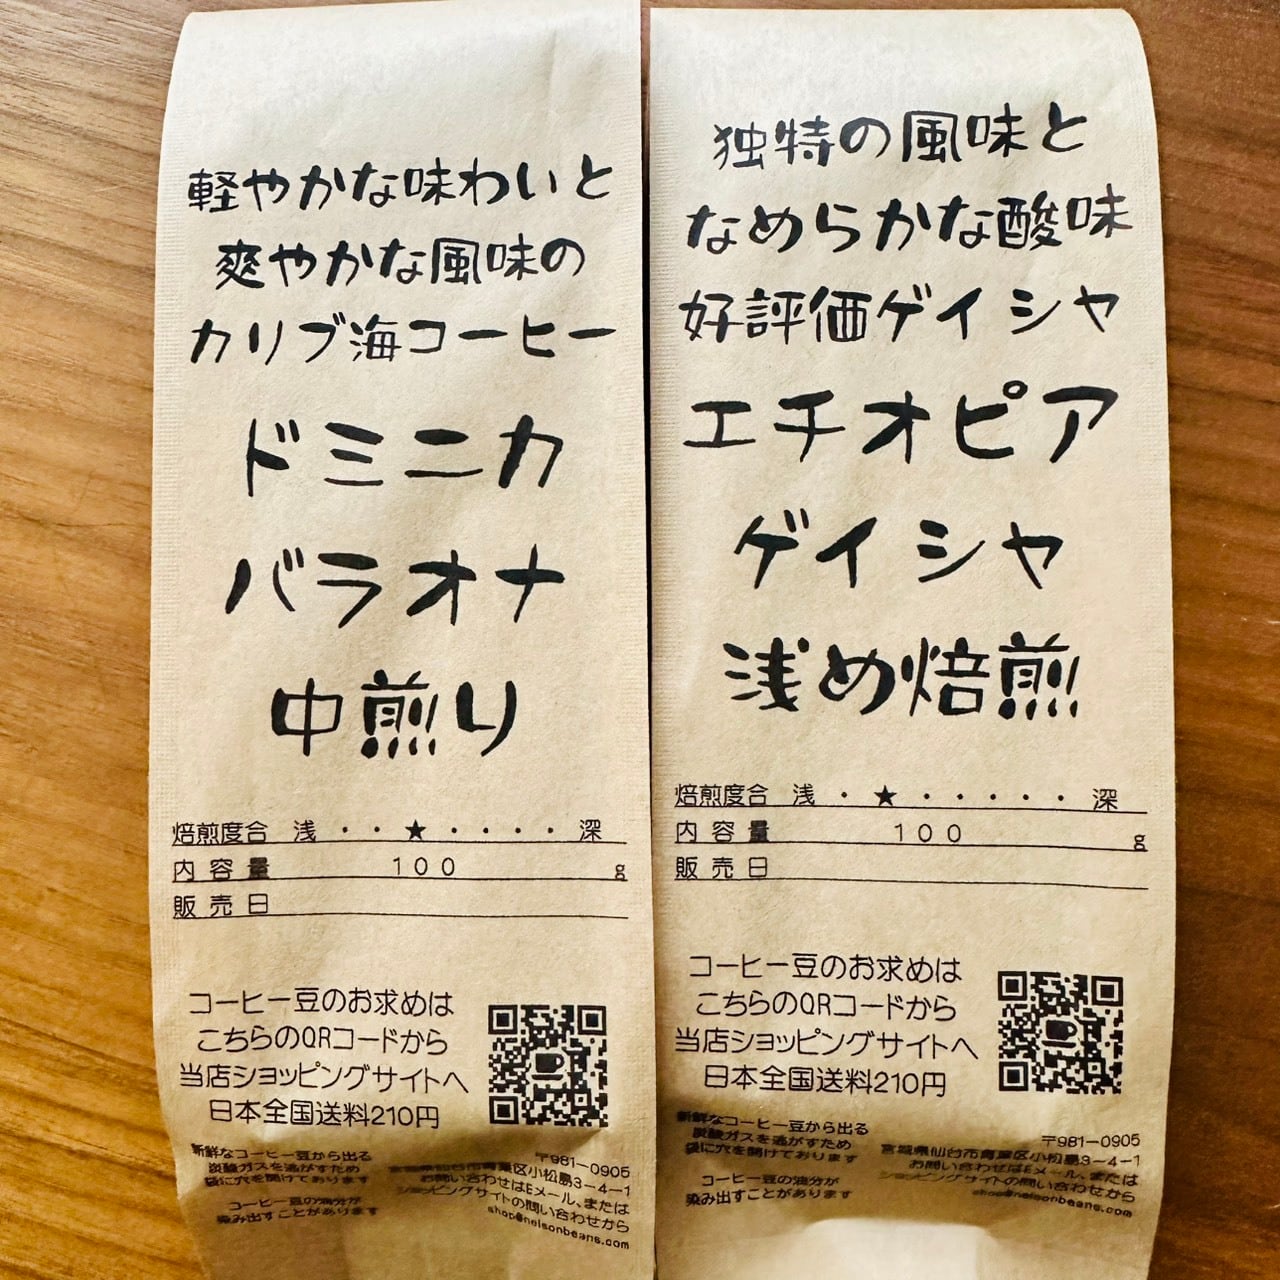 軽やかな味わいと
爽やかな風味の
カリブ海コーヒー
ドミニカ
バラオナ
中煎り
焙煎度合 浅・・★・・・・深
内容量 100 g
販売日
コーヒー豆のお求めは
こちらのQRコードから
当店ショッピングサイトへ
日本全国送料210円
新鮮なコーヒー豆から出る
炭酸ガスを逃がすため
袋に穴を開けております
コーヒー豆の油分が
染み出すことがあります
〒981-0905
宮城県仙台市青葉区小松島3-4-1
お問い合わせはEメール、または
ショッピングサイトの問い合わせから
shop@nelsonbeans.com
独特の風味と
なめらかな酸味
好評価ゲイシャ
エチオピア
ゲイシャ
浅め焙煎
焙煎度合 浅・★・・・・・深
内容量 100 g
販売日
コーヒー豆のお求めは
こちらのQRコードから
当店ショッピングサイトへ
日本全国送料210円
新鮮なコーヒー豆から出る
炭酸ガスを逃がすため
袋に穴を開けております
コーヒー豆の油分が
染み出すことがあります
〒981-0905
宮城県仙台市青葉区小松島3-4-1
お問い合わせはEメール、または
ショッピングサイトの問い合わせから
shop@nelsonbeans.com